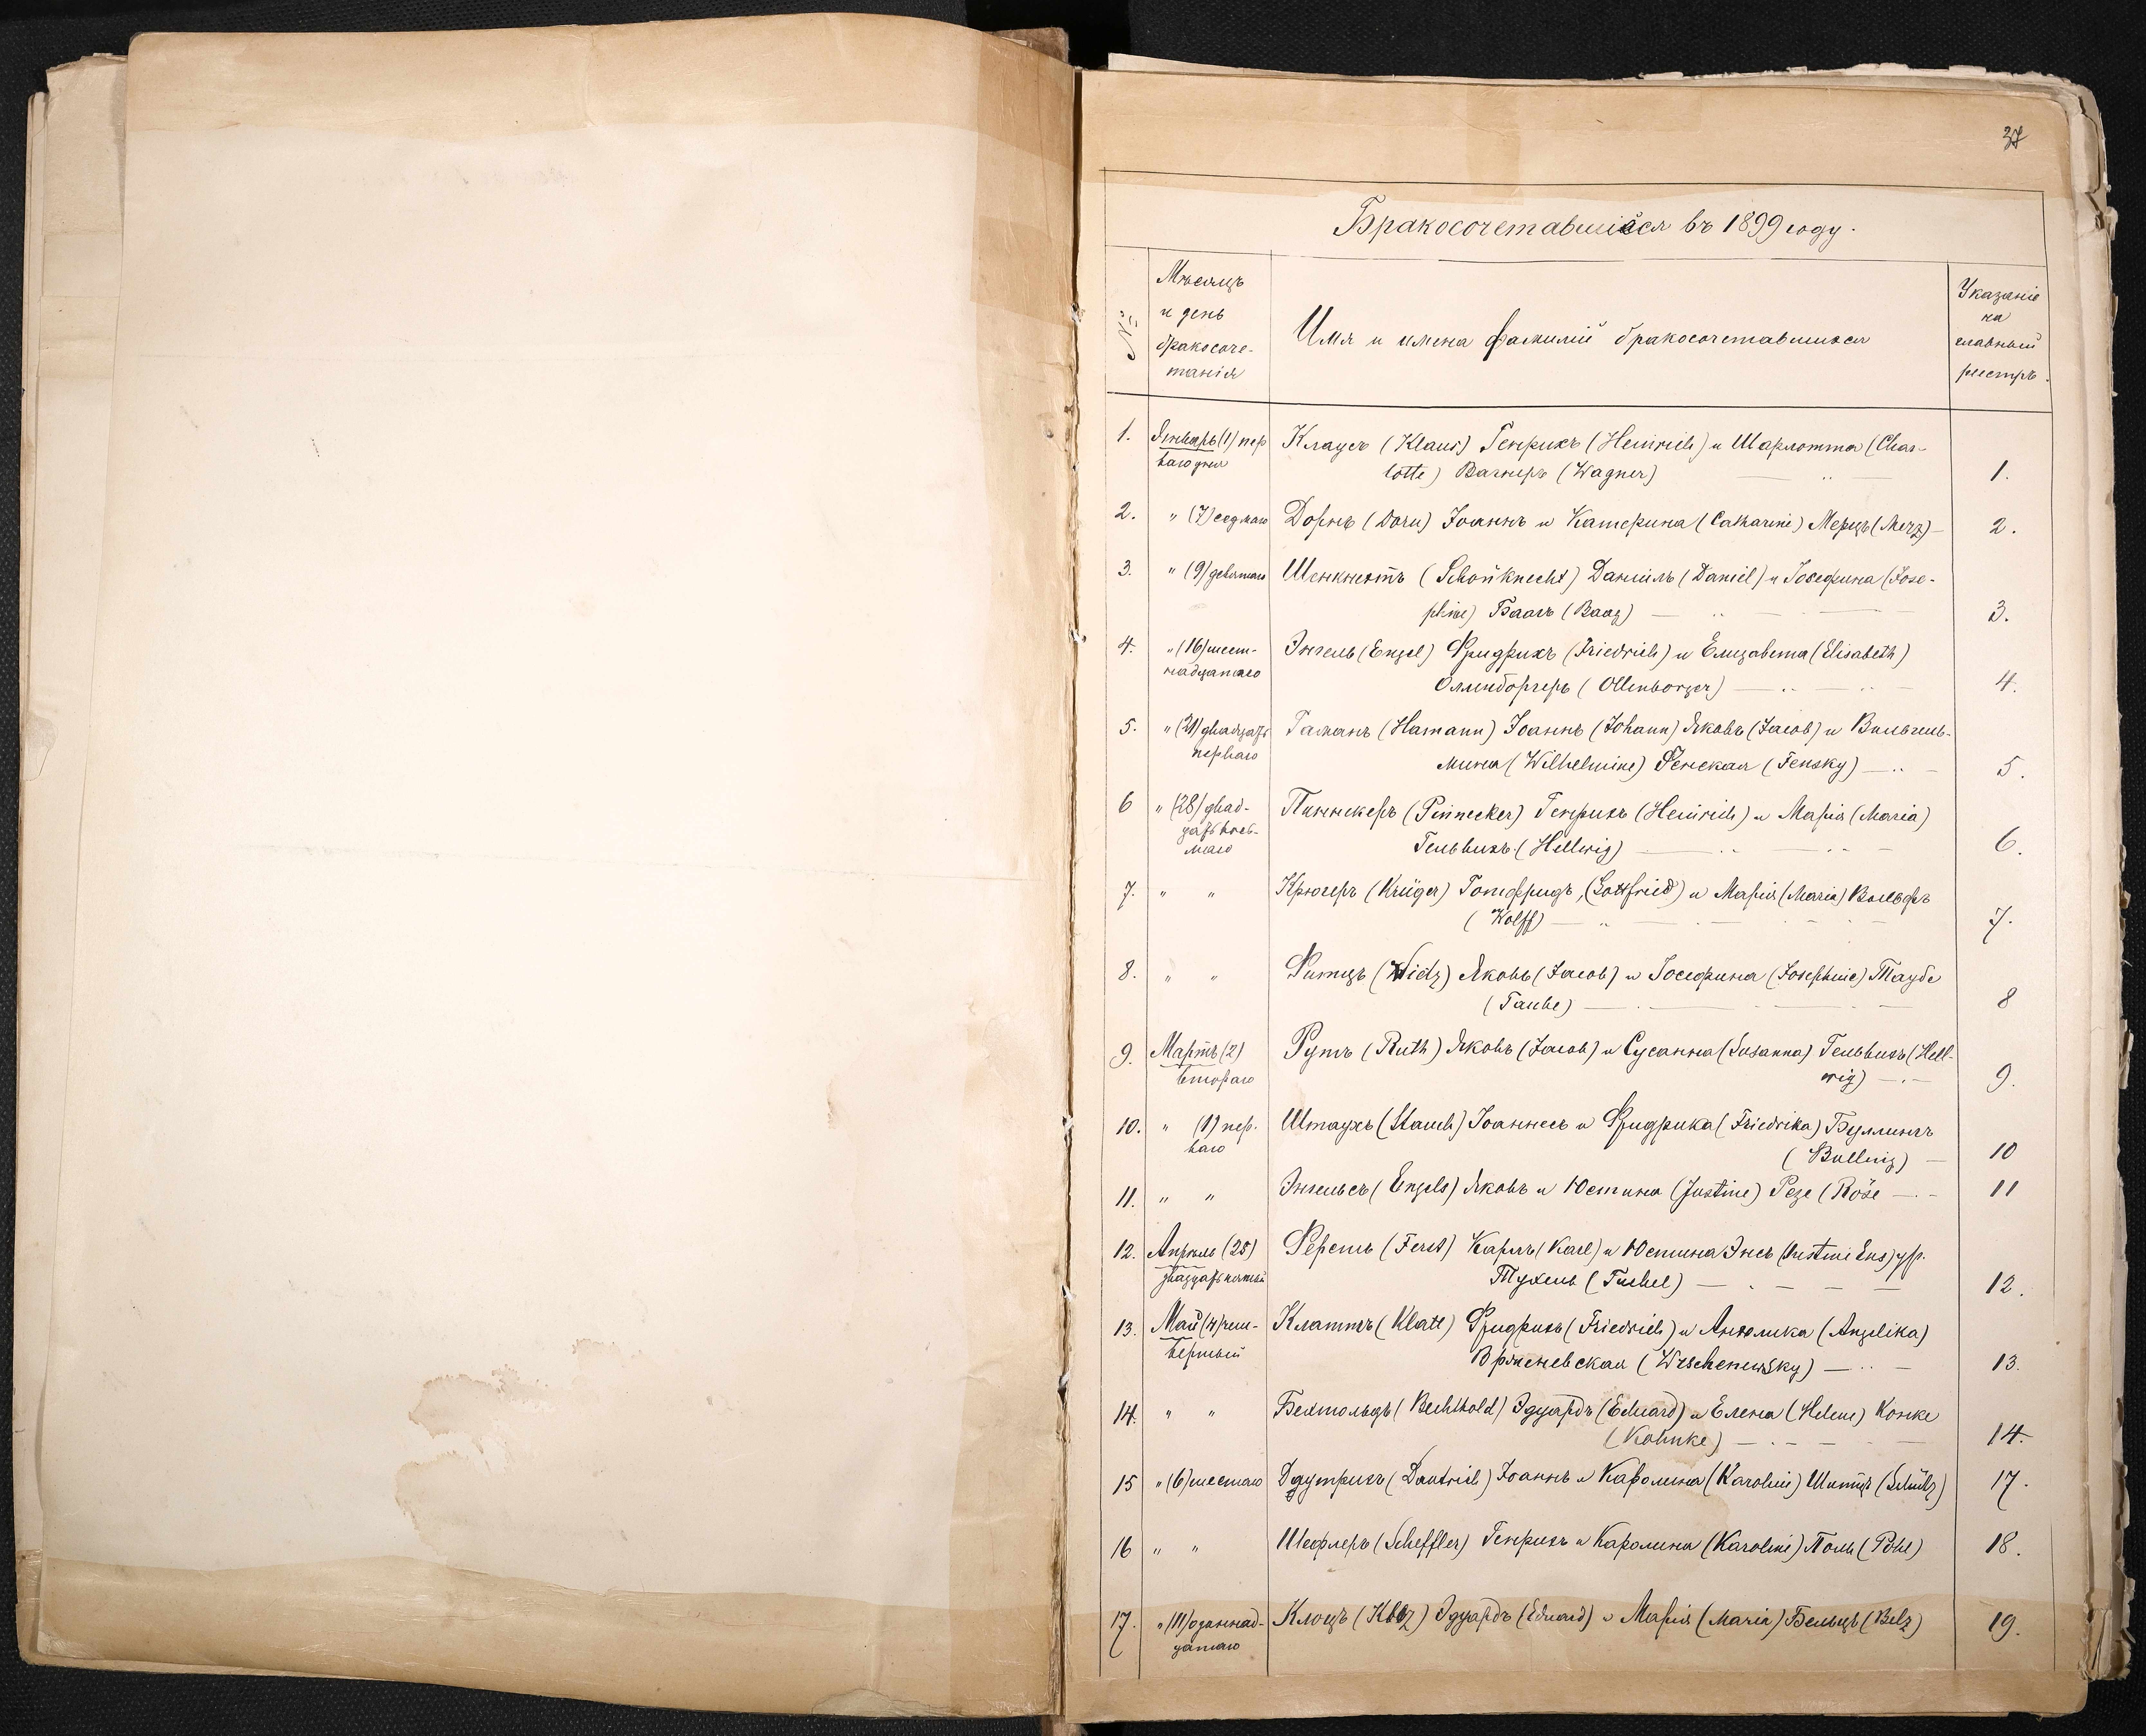 37
Бракосочетавшіеся въ 1899 году.
№
Мѣсяцъ
и день
бракосоче-
танія
Имя и имена фамилій бракосочетавшихся
Указаніе
на
главный
реестръ.
1. Январь (1) пер
ваго дня
Клаусъ (Klaus) Генрихъ (Heinrich) и Шарлотта (Char-
lotte) Вагнеръ (Wagner) 1.
2. " (7) седмаго Дорнъ (Dorn) Іоаннъ и Катерина (Catharine) Мерцъ (Merz) — 2.
3. " (9) девятаго Шенкнехтъ (Schönknecht) Даніилъ (Daniel) и Іосефина (Jose-
phine) Баазъ (Baaz) — 3.
4. " (16) шест-
надцатаго
Энгель (Engel) Фридрихъ (Friedrich) и Елизавета (Elisabeth)
Олленборгеръ (Ollenborger) — 4.
5. " (21) двадцать
перваго
Гаманъ (Hamann) Іоаннъ (Johann) Яковъ (Jacob) и Вильгель-
мина (Wilhelmine) Фенская (Fensky) — 5.
6 " (28) двад-
цать вось-
маго
Пиннекеръ (Pinnecker) Генрихъ (Heinrich) и Марія (Maria)
Гельвихъ (Hellwig) 6.
7. " " Крюгеръ (Krüger) Готфридъ, (Gottfried) и Марія (Maria) Вольфъ
(Wolff) — 7.
8. " " Яковъ (Jacob) и Іосефина (Josephine) Таубе
(Taube) — 8
9. Мартъ (2)
втораго
Рутъ (Ruth) Яковъ (Jacob) и Сусанна (Susanna) Гельвихъ (Hell-
wig) — 9.
10. " (9) пер-
ваго
Штаухъ (Stauch) Іоаннесъ и Фридрика (Friedrika) Буллингъ
(Bulling) — 10
11. " " Энгельсъ (Engels) Яковъ и Юстина (Justine) Резе (Röse — 11
12. Апрѣль (25)
двадцать пятый
Ферстъ (Ferst) Карлъ (Karl) и Юстина Энсъ (Justine Ens) ур.
Тухель (Tuchel) — 12.
13. Май (4) чет-
вертый
Клаттъ (Klatt) Фридрихъ (Friedrich) и Ангелика (Angelika)
Врженевская (Wrschenewsky) — 13.
14. " " Бехтольдъ (Bechthold) Эдуардъ (Eduard) и Елена (Helene) Конке
(Kohnke) — 14.
15 " (6) шестаго (Dautrich) Іоаннъ и Каролина (Karoline) Шитцъ (Schütz) 17.
16 " " Шефлеръ (Scheffler) Генрихъ и Каролина (Karoline) Поль (Pohl) 18.
17. " (11) одиннад-
цатаго
Клоцъ (Klotz) Эдуардъ (Eduard) и Марія (Maria) Бельцъ (Belz) 19.